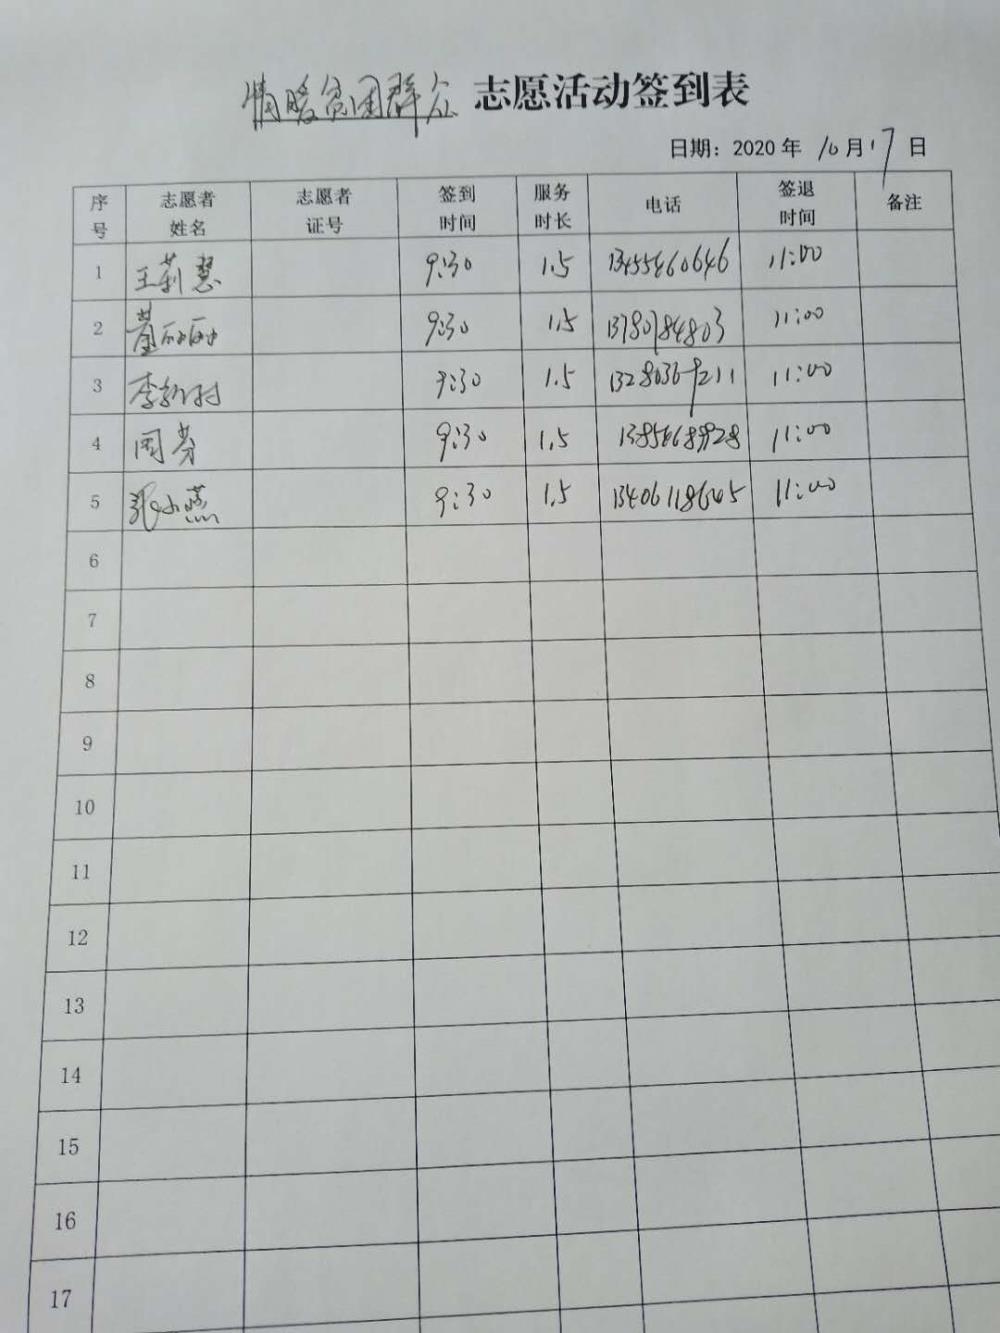 情暖贫困群众 志愿活动签到表
日期：2020 年 10 月 17 日
序号 志愿者姓名 志愿者证号 签到时间 服务时长 电话 签退时间 备注
1 王莉慧 9:30 1.5 13455460646 11:00
2 董丽丽 9:30 1.5 13780784803 11:00
3 9:30 1.5 11:00
4 周芳 9:30 1.5 11:00
5 张小燕 9:30 1.5 13406118645 11:00
6
7
8
9
10
11
12
13
14
15
16
17